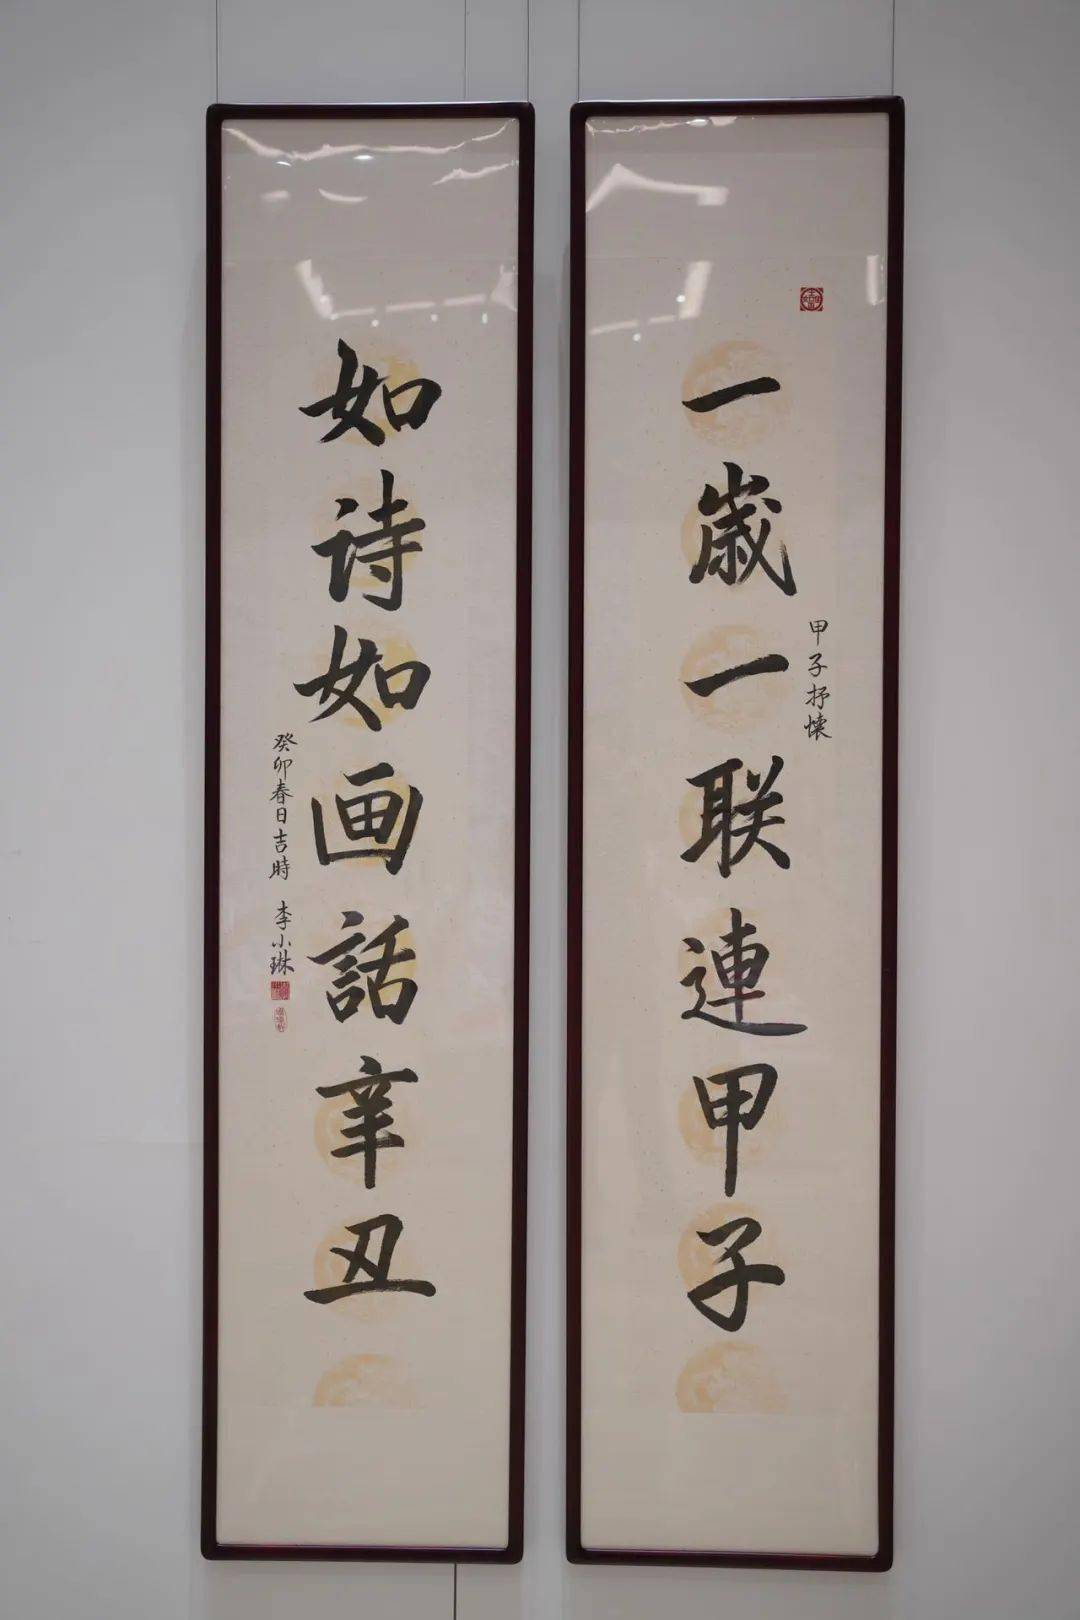 一歲一联連甲子
甲子抒懷
如诗如画話辛丑
癸卯春日吉時 李小琳